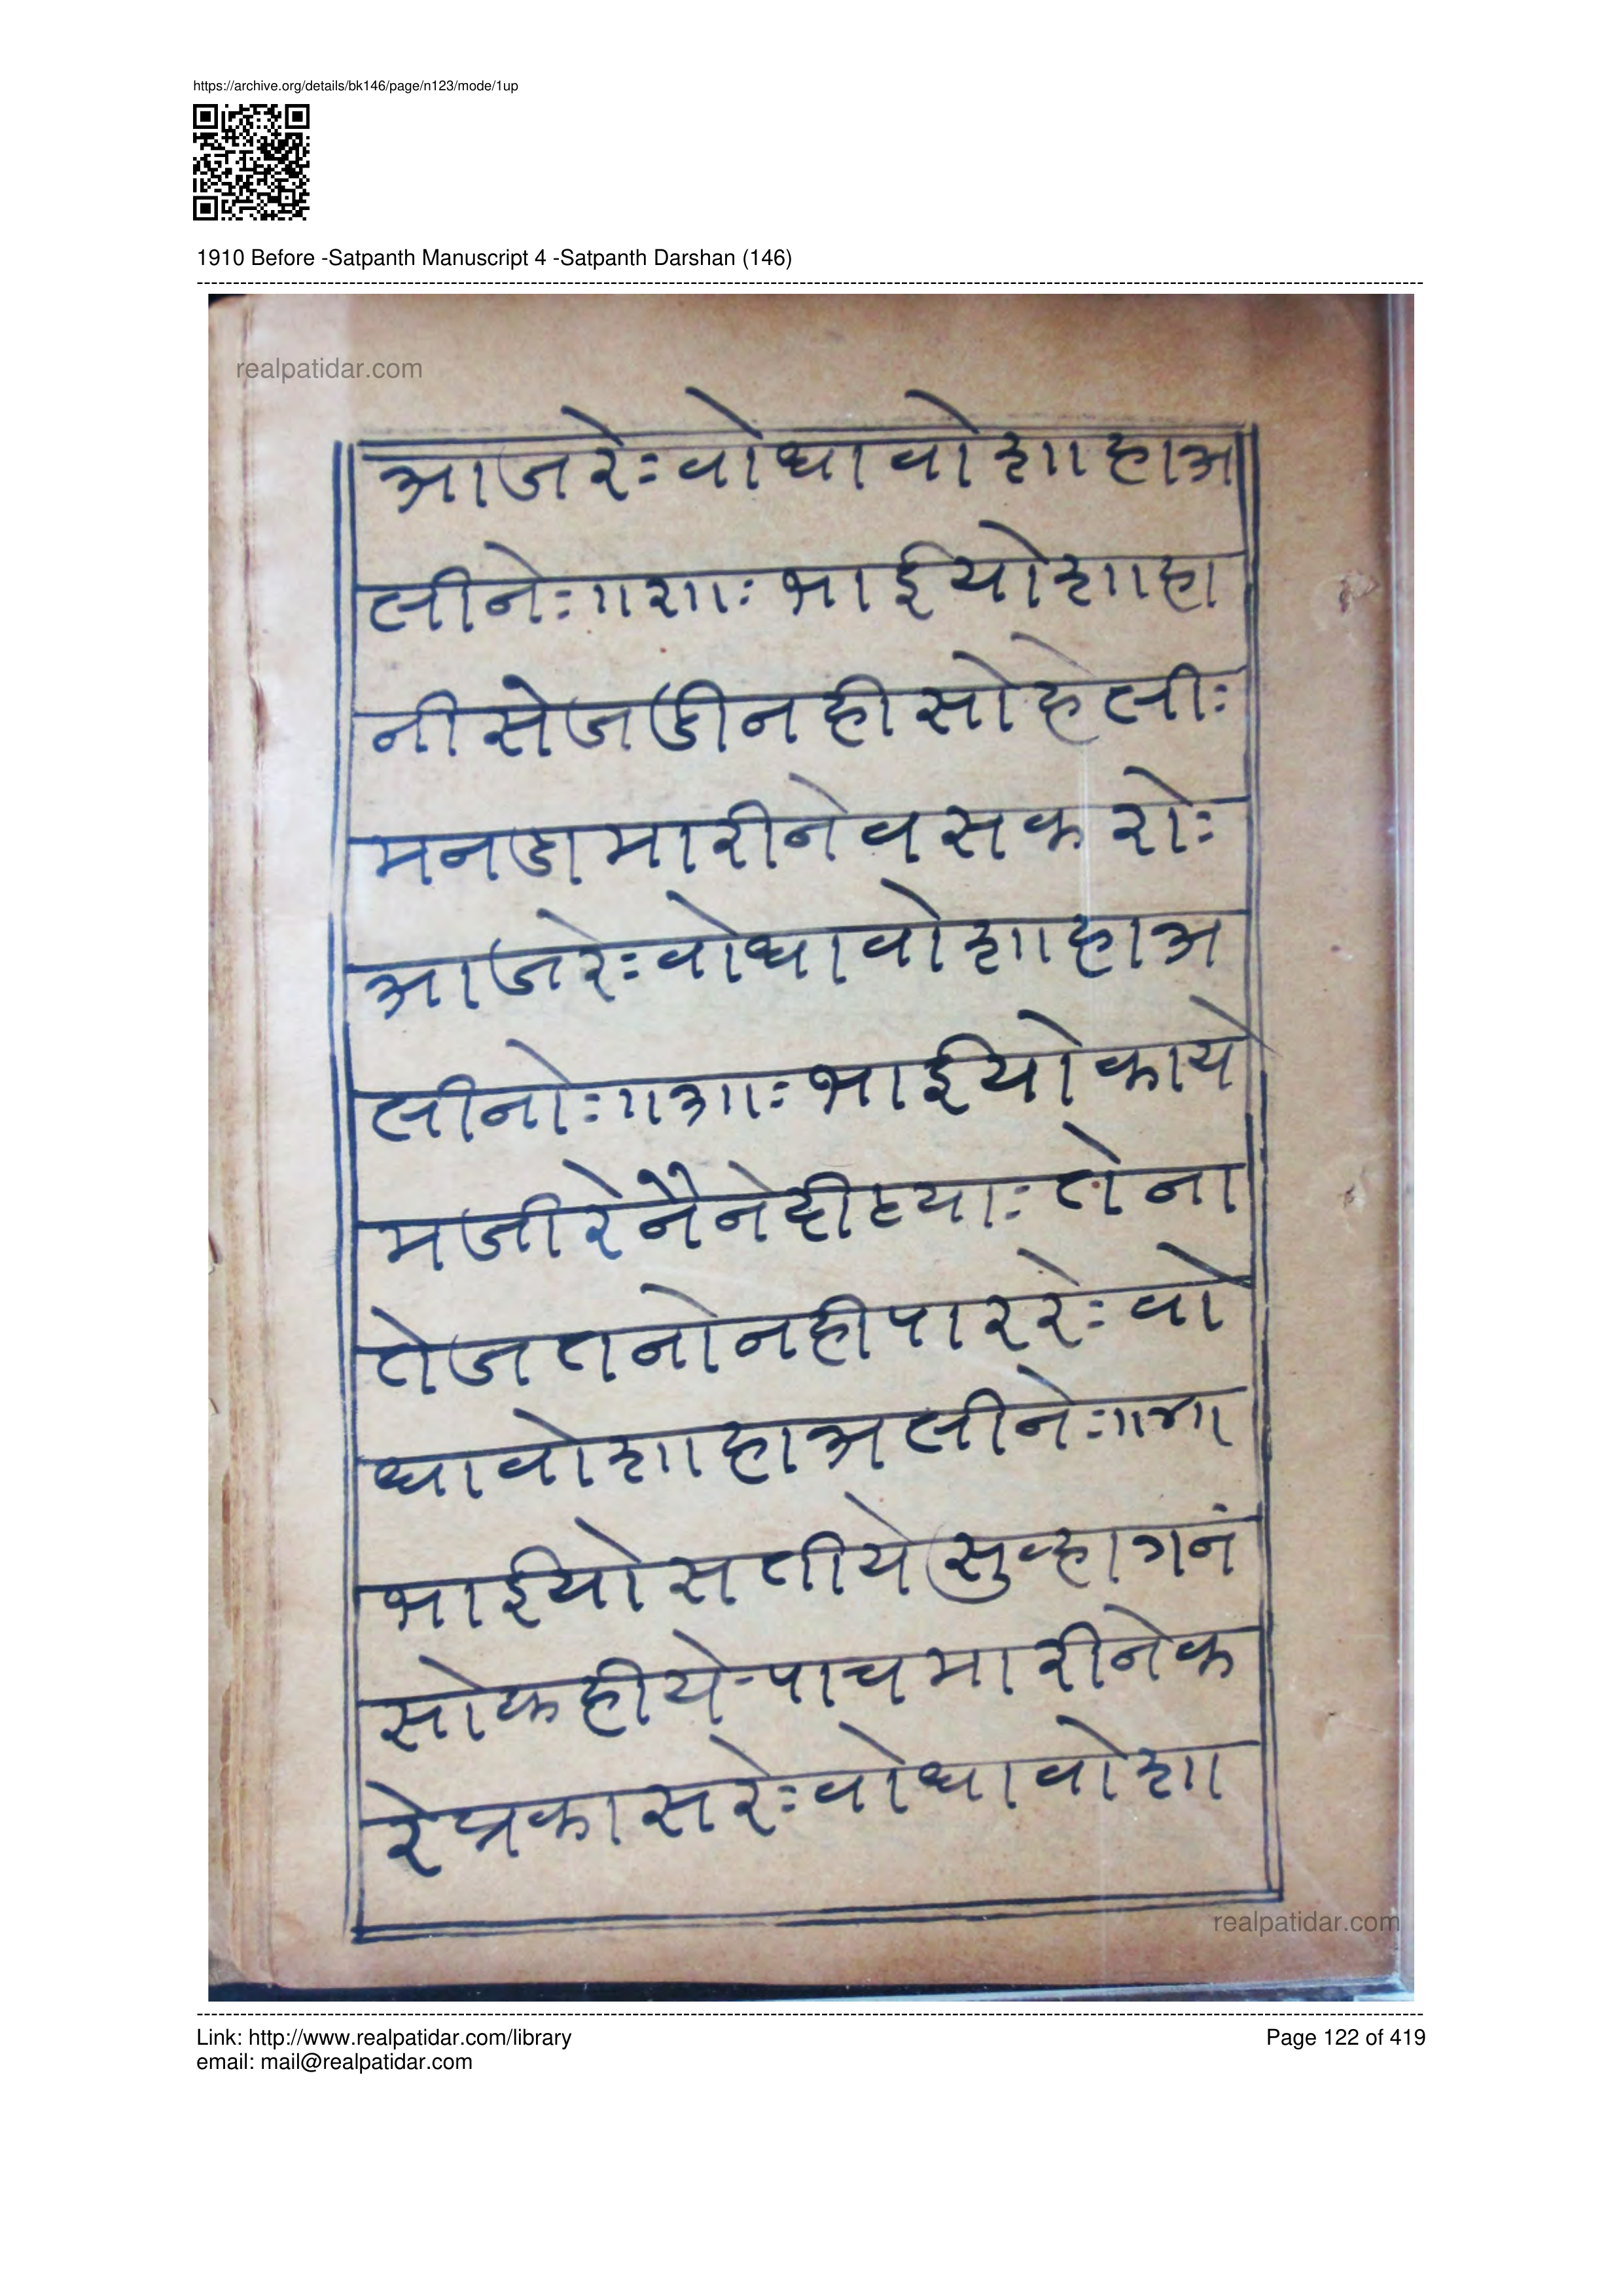 https://archive.org/details/bk146/page/n123/mode/1up
1910 Before -Satpanth Manuscript 4 -Satpanth Darshan (146)
realpatidar.com
आजरेः वोधावो शाहाअ
लीनेः ॥२॥ः भाईयो शाहा
नी सेजडी नही सोहेलीः
मनडा मारीने वस करोः
आजरेः वोधावो शाहाअ
लीनोः ॥३॥ः भाईयो काये
मजीरे नैने दीठ्याः तेना
तेज तनो नही पार रेः वो
धावो शाहाअलीनेः ॥४॥
भाईयो सतीये सुव्हागनं
सो कहीये-पाच मारीने क
रे प्रकास रेः वोधावो शा
realpatidar.com
Link: http://www.realpatidar.com/library
Page 122 of 419
email: mail@realpatidar.com